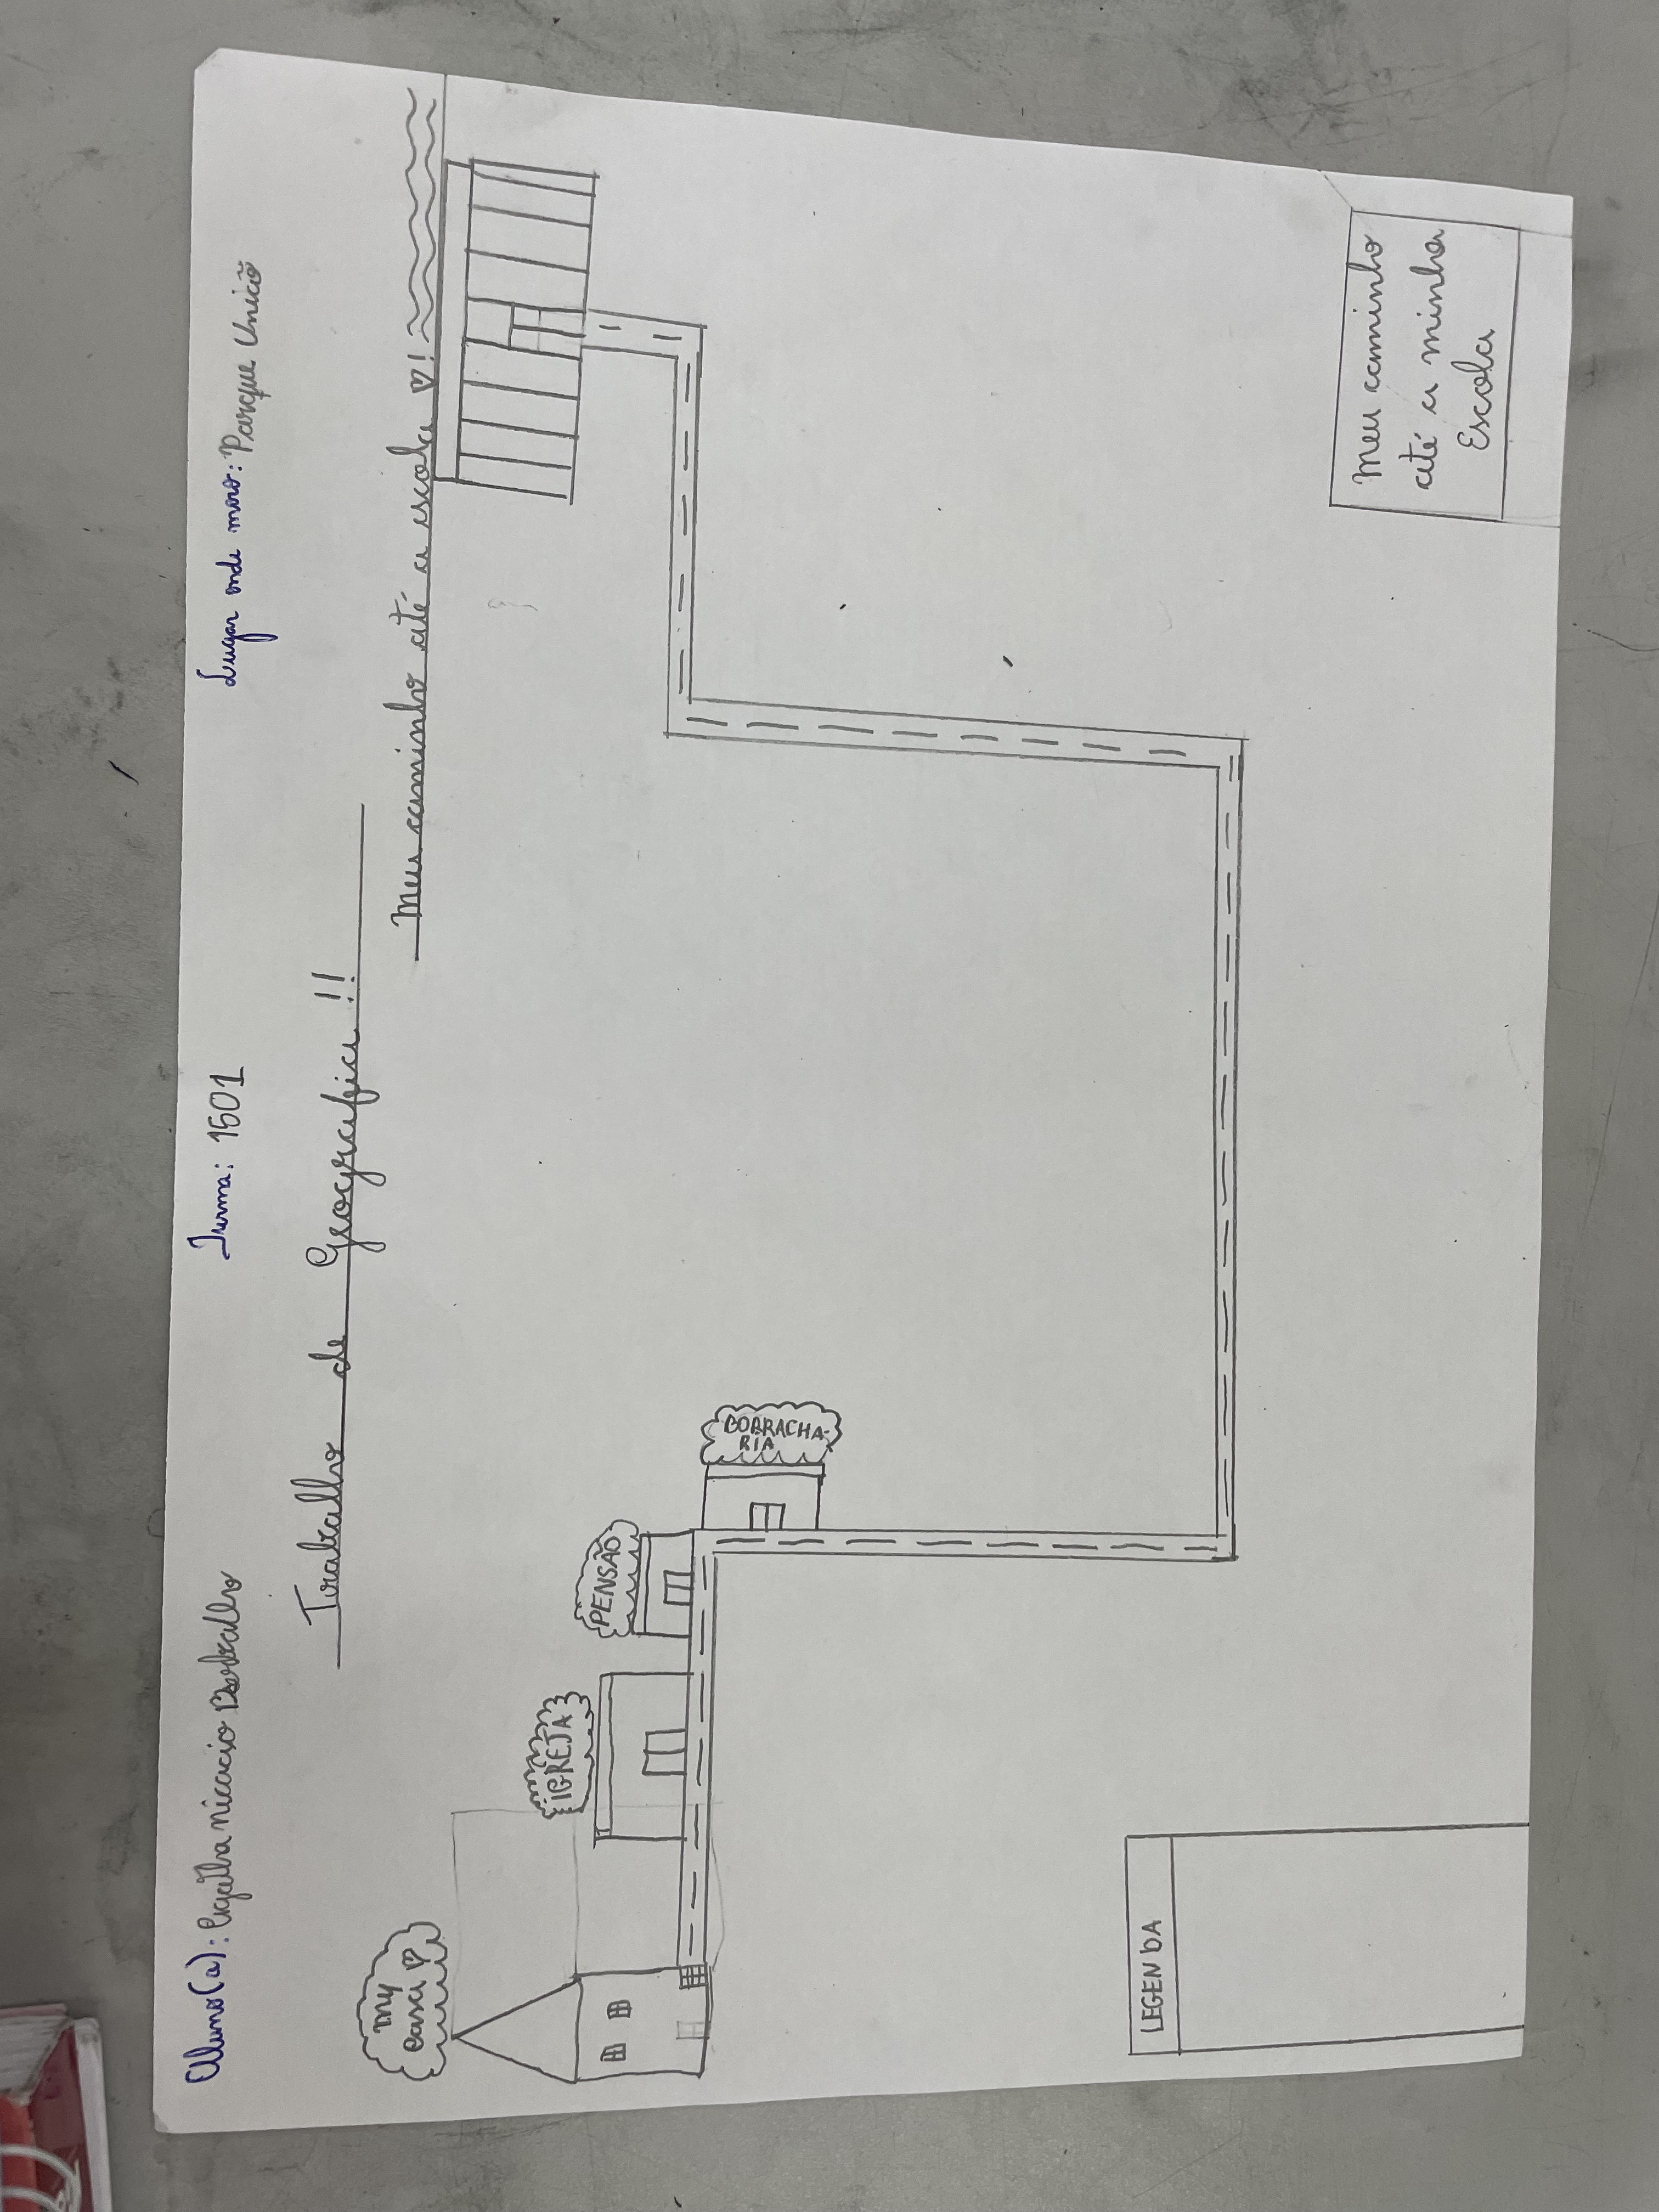 Aluno(a):
Turma: 1601
Lugar onde moro: Parque União
Trabalho de Geografia!!
Meu caminho até a escola ♡!
my
casa ♡
IGREJA
PENSÃO
BORRACHA-
RIA
LEGENDA
Meu caminho
até a minha
Escola